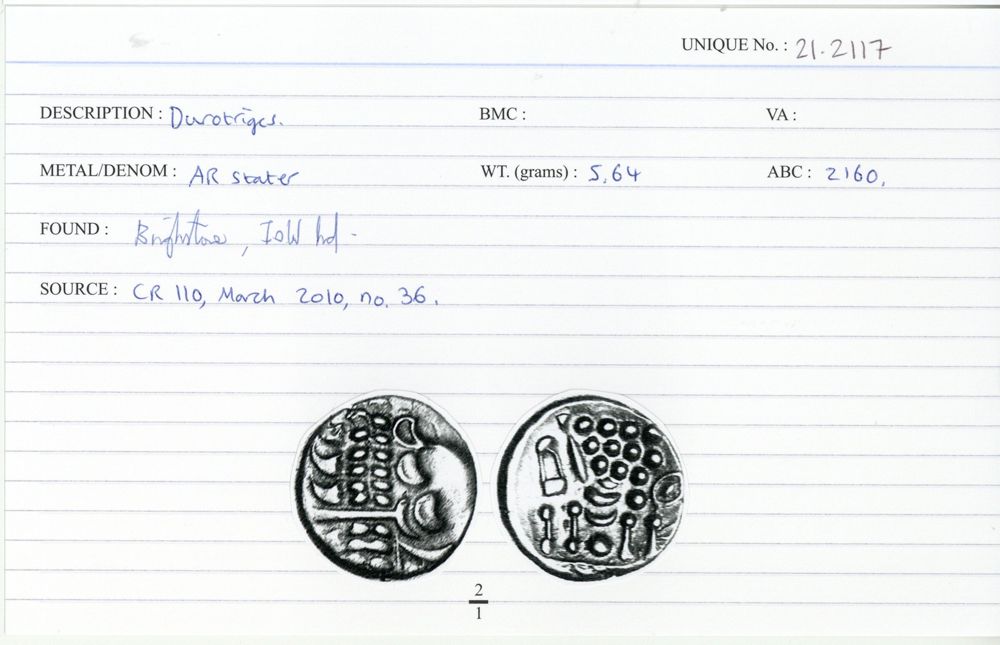 UNIQUE No. : 21.2117
DESCRIPTION : Durotriges. BMC : VA :
METAL/DENOM : AR stater WT. (grams) : 5.64 ABC : 2160.
FOUND : Brighstone, IoW hd.
SOURCE : CR 110, March 2010, no. 36.
2
1